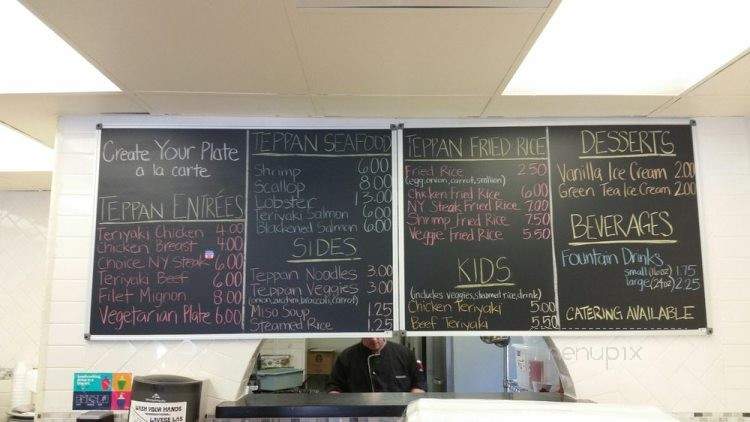 Create Your Plate
a la carte
TEPPAN ENTRÉES
Teriyaki Chicken 4.00
Chicken Breast 4.00
Choice NY Steak 6.00
Teriyaki Beef 6.00
Filet Mignon 8.00
Vegetarian Plate 6.00
TEPPAN SEAFOOD
Shrimp 6.00
Scallop 8.00
Lobster 13.00
Teriyaki Salmon 6.00
Blackened Salmon 6.00
SIDES
Teppan Noodles 3.00
Teppan Veggies 3.00
(onion, zucchini, broccoli, carrot)
Miso Soup 1.25
Steamed Rice 1.25
TEPPAN FRIED RICE
Fried Rice 2.50
(egg, onion, carrot, scallion)
Chicken Fried Rice 6.00
NY Steak Fried Rice 7.00
Shrimp Fried Rice 7.50
Veggie Fried Rice 5.50
KIDS
(includes veggies, steamed rice, drink)
Chicken Teriyaki 5.00
Beef Teriyaki 5.50
DESSERTS
Vanilla Ice Cream 2.00
Green Tea Ice Cream 2.00
BEVERAGES
Fountain Drinks
small (16oz) 1.75
large (24oz) 2.25
CATERING AVAILABLE
menupix
WASH YOUR HANDS
LAVESE LAS